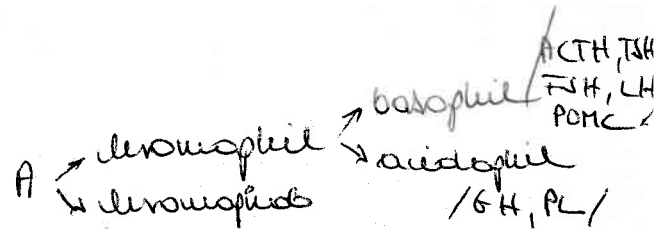 /ACTH, TSH
FSH, LH
POMC/
basophil
A chromophil
acidophil
chromophob
/GH, PL/